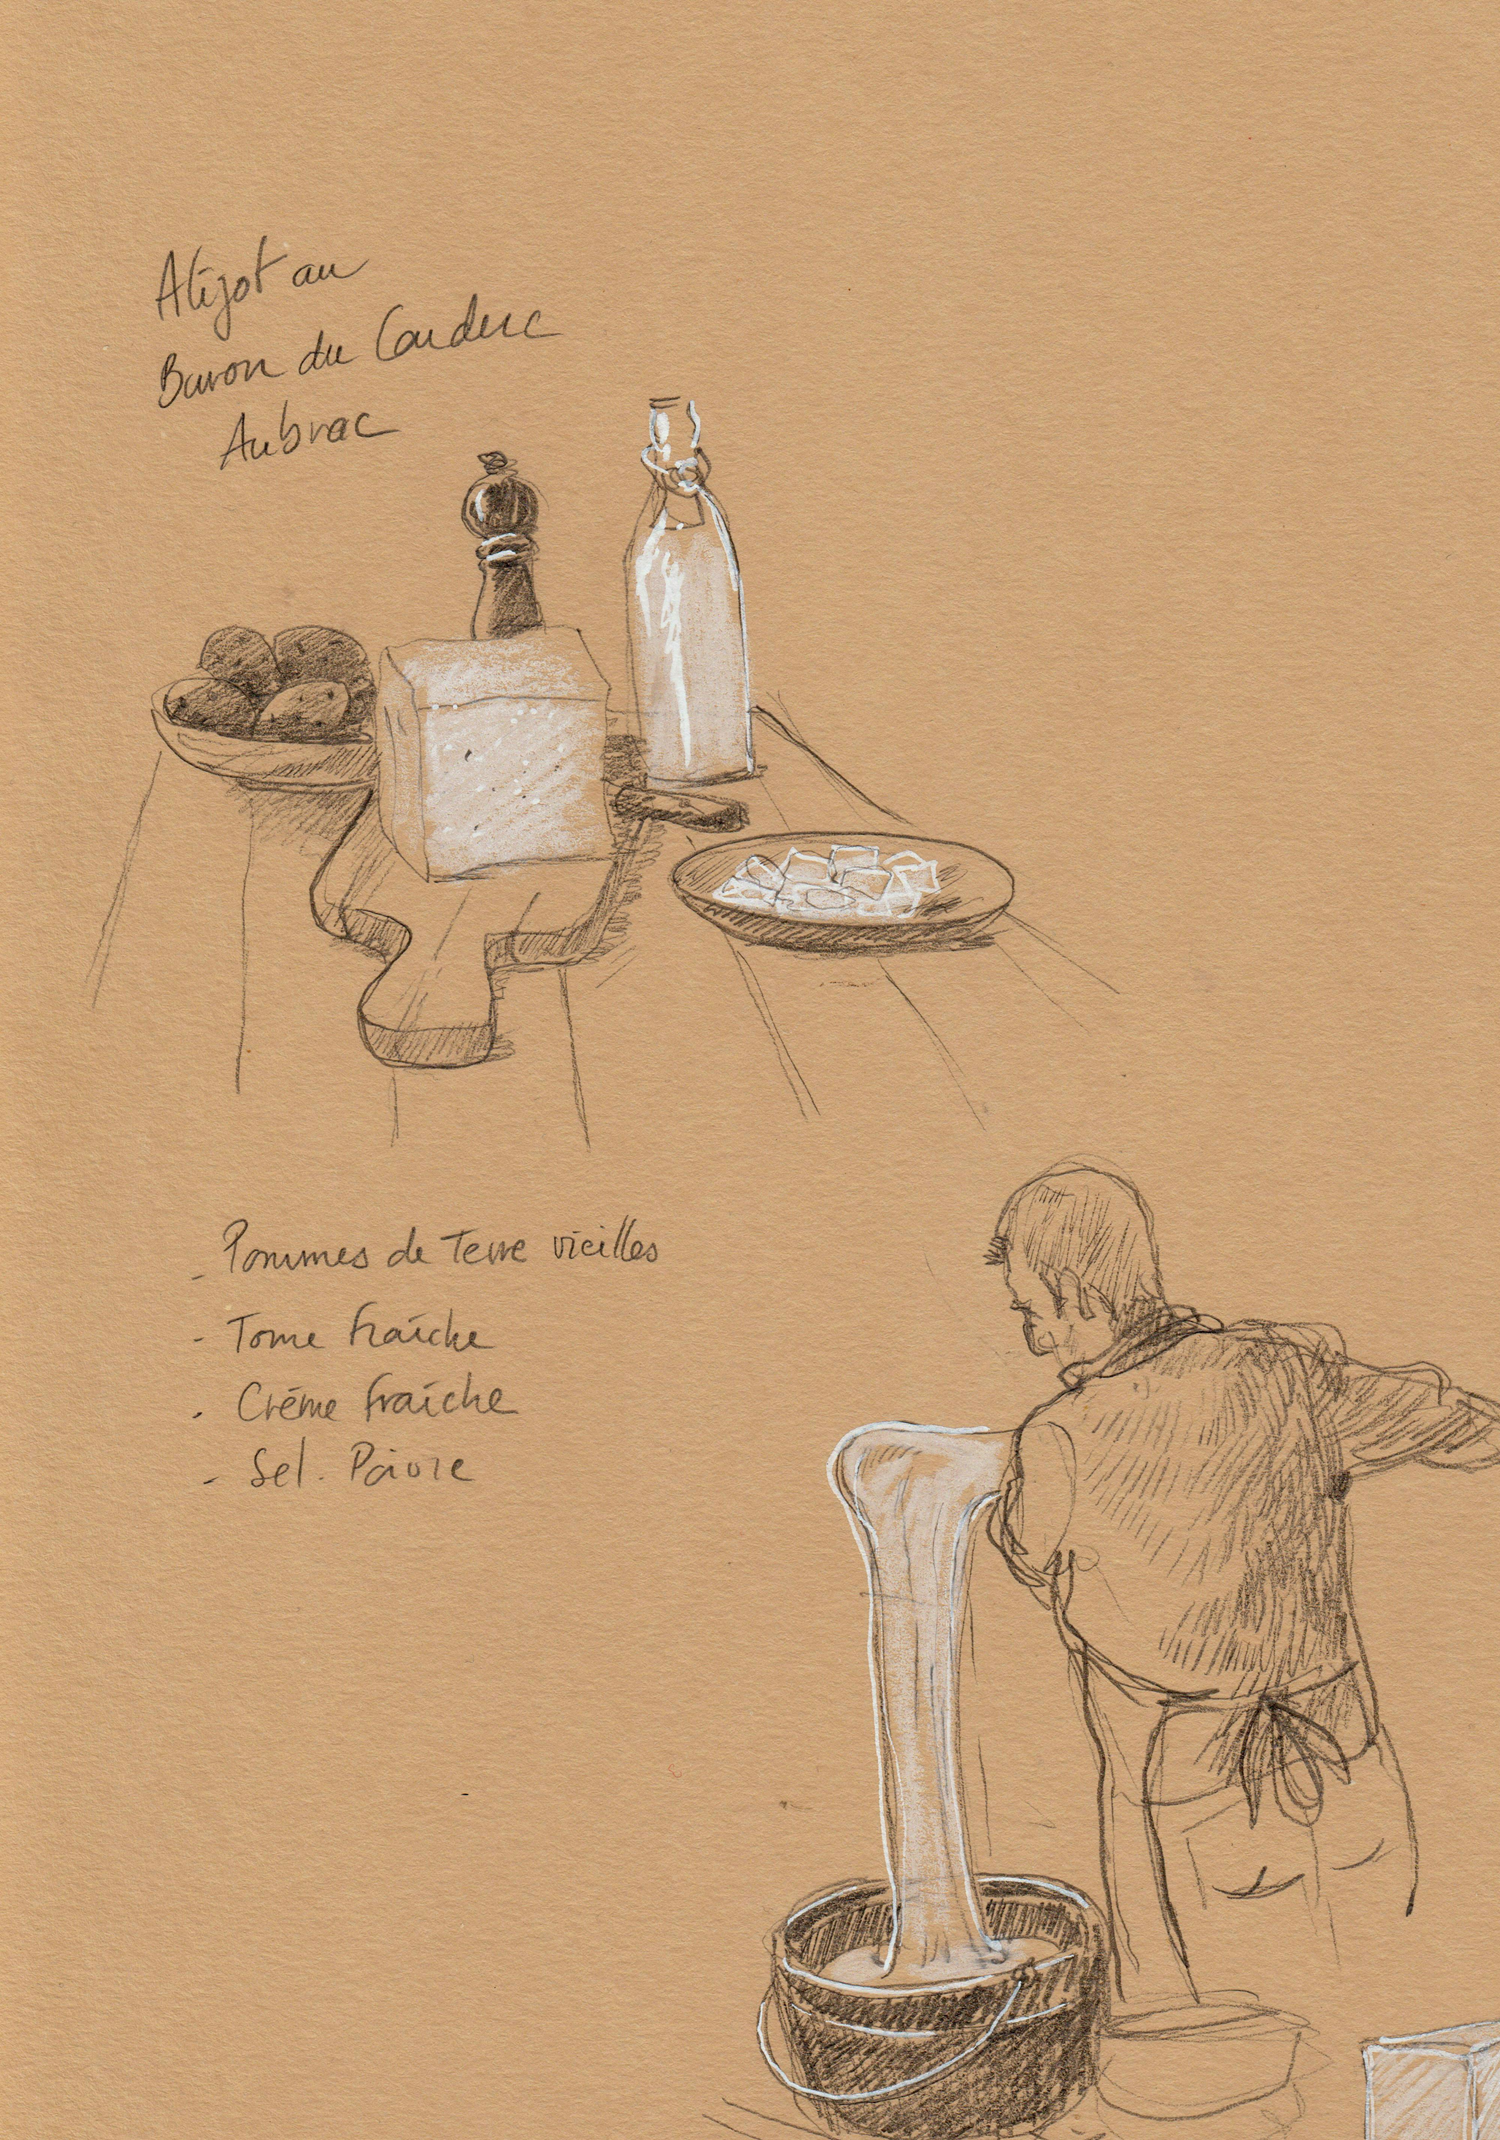 Aligot au
Buron du Couderc
Aubrac
- Pommes de Terre vieilles
- Tome fraîche
- Crème fraîche
- Sel. Poivre